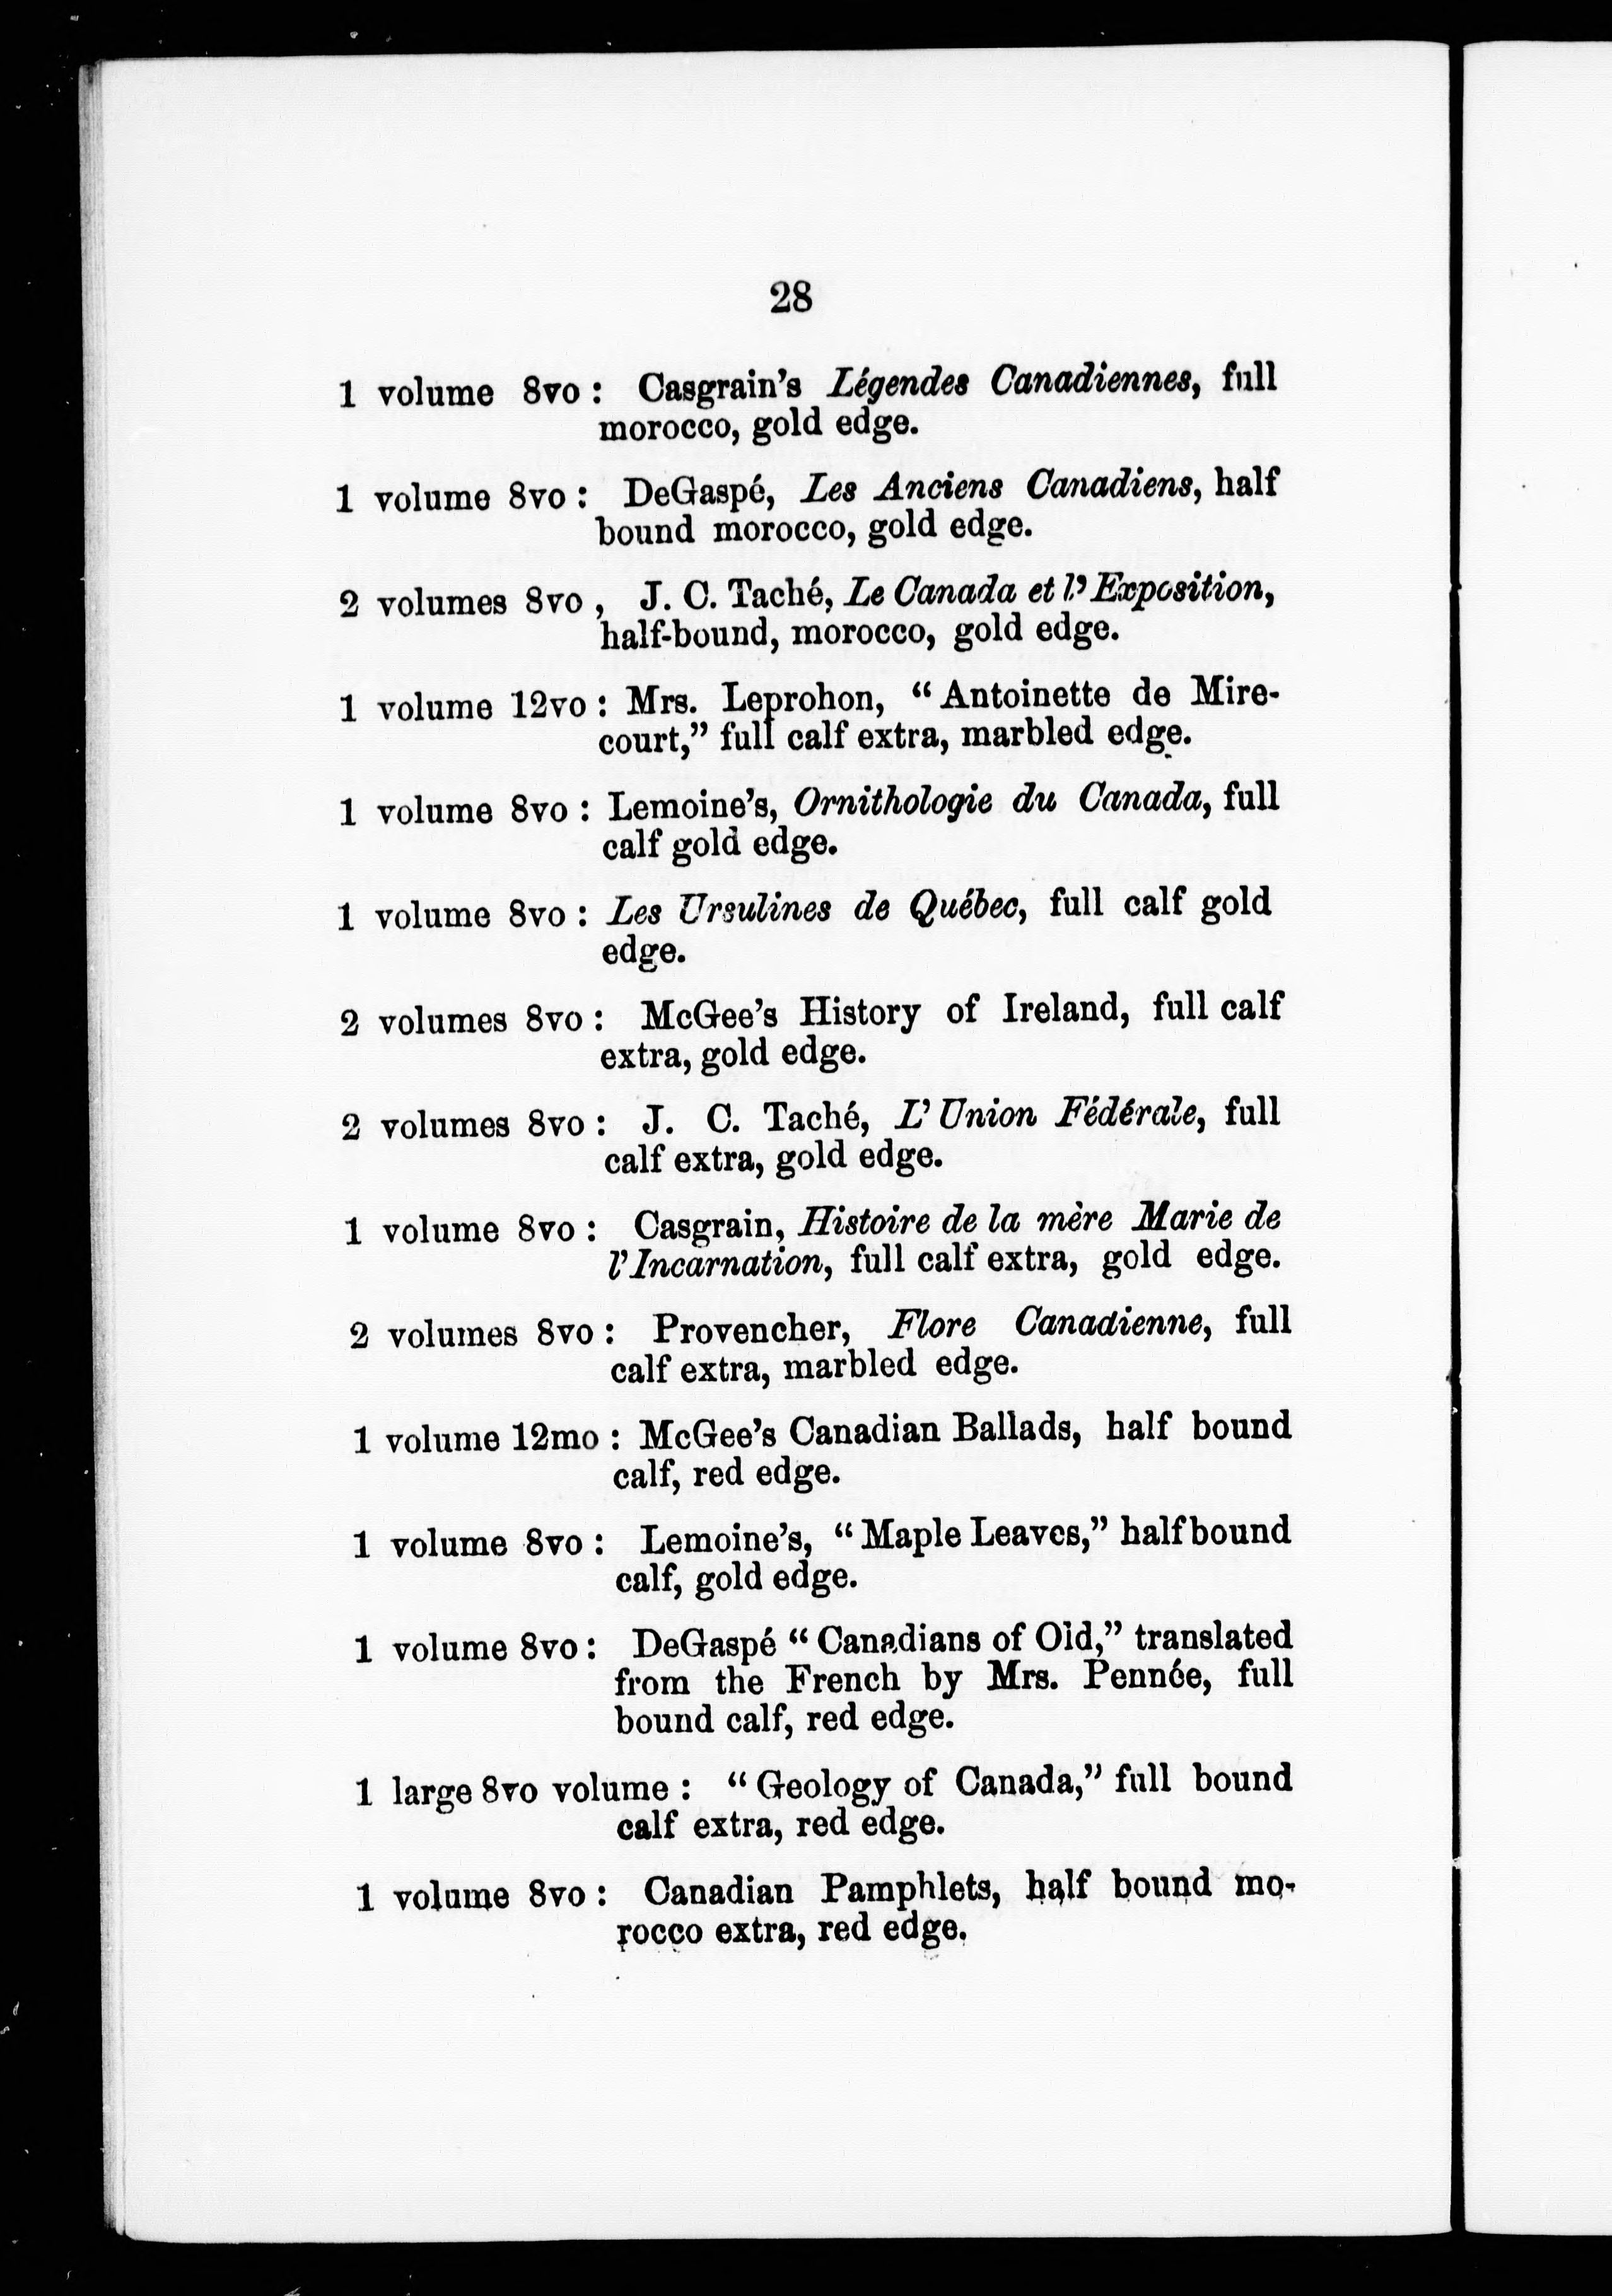 28
1 volume 8vo : Casgrain's Légendes Canadiennes, full
morocco, gold edge.
1 volume 8vo : DeGaspé, Les Anciens Canadiens, half
bound morocco, gold edge.
2 volumes 8vo , J. C. Taché, Le Canada et l'Exposition,
half-bound, morocco, gold edge.
1 volume 12vo : Mrs. Leprohon, "Antoinette de Mire-
court," full calf extra, marbled edge.
1 volume 8vo : Lemoine's, Ornithologie du Canada, full
calf gold edge.
1 volume 8vo : Les Ursulines de Québec, full calf gold
edge.
2 volumes 8vo : McGee's History of Ireland, full calf
extra, gold edge.
2 volumes 8vo : J. C. Taché, L'Union Fédérale, full
calf extra, gold edge.
1 volume 8vo : Casgrain, Histoire de la mère Marie de
l'Incarnation, full calf extra, gold edge.
2 volumes 8vo : Provencher, Flore Canadienne, full
calf extra, marbled edge.
1 volume 12mo : McGee's Canadian Ballads, half bound
calf, red edge.
1 volume 8vo : Lemoine's, "Maple Leaves," half bound
calf, gold edge.
1 volume 8vo : DeGaspé "Canadians of Old," translated
from the French by Mrs. Pennée, full
bound calf, red edge.
1 large 8vo volume : "Geology of Canada," full bound
calf extra, red edge.
1 volume 8vo : Canadian Pamphlets, half bound mo-
rocco extra, red edge.